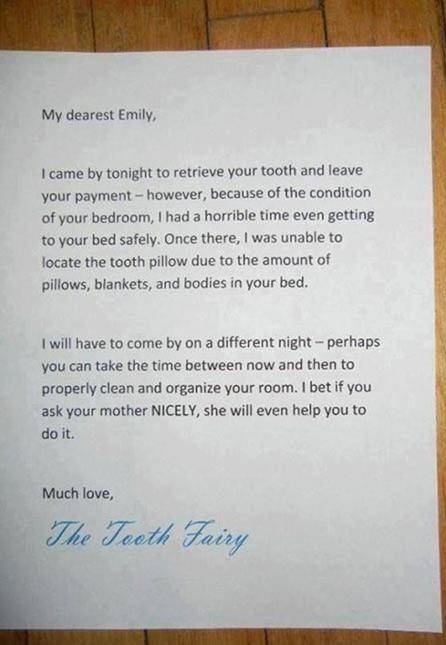 My dearest Emily,
I came by tonight to retrieve your tooth and leave
your payment – however, because of the condition
of your bedroom, I had a horrible time even getting
to your bed safely. Once there, I was unable to
locate the tooth pillow due to the amount of
pillows, blankets, and bodies in your bed.
I will have to come by on a different night – perhaps
you can take the time between now and then to
properly clean and organize your room. I bet if you
ask your mother NICELY, she will even help you to
do it.
Much love,
The Tooth Fairy